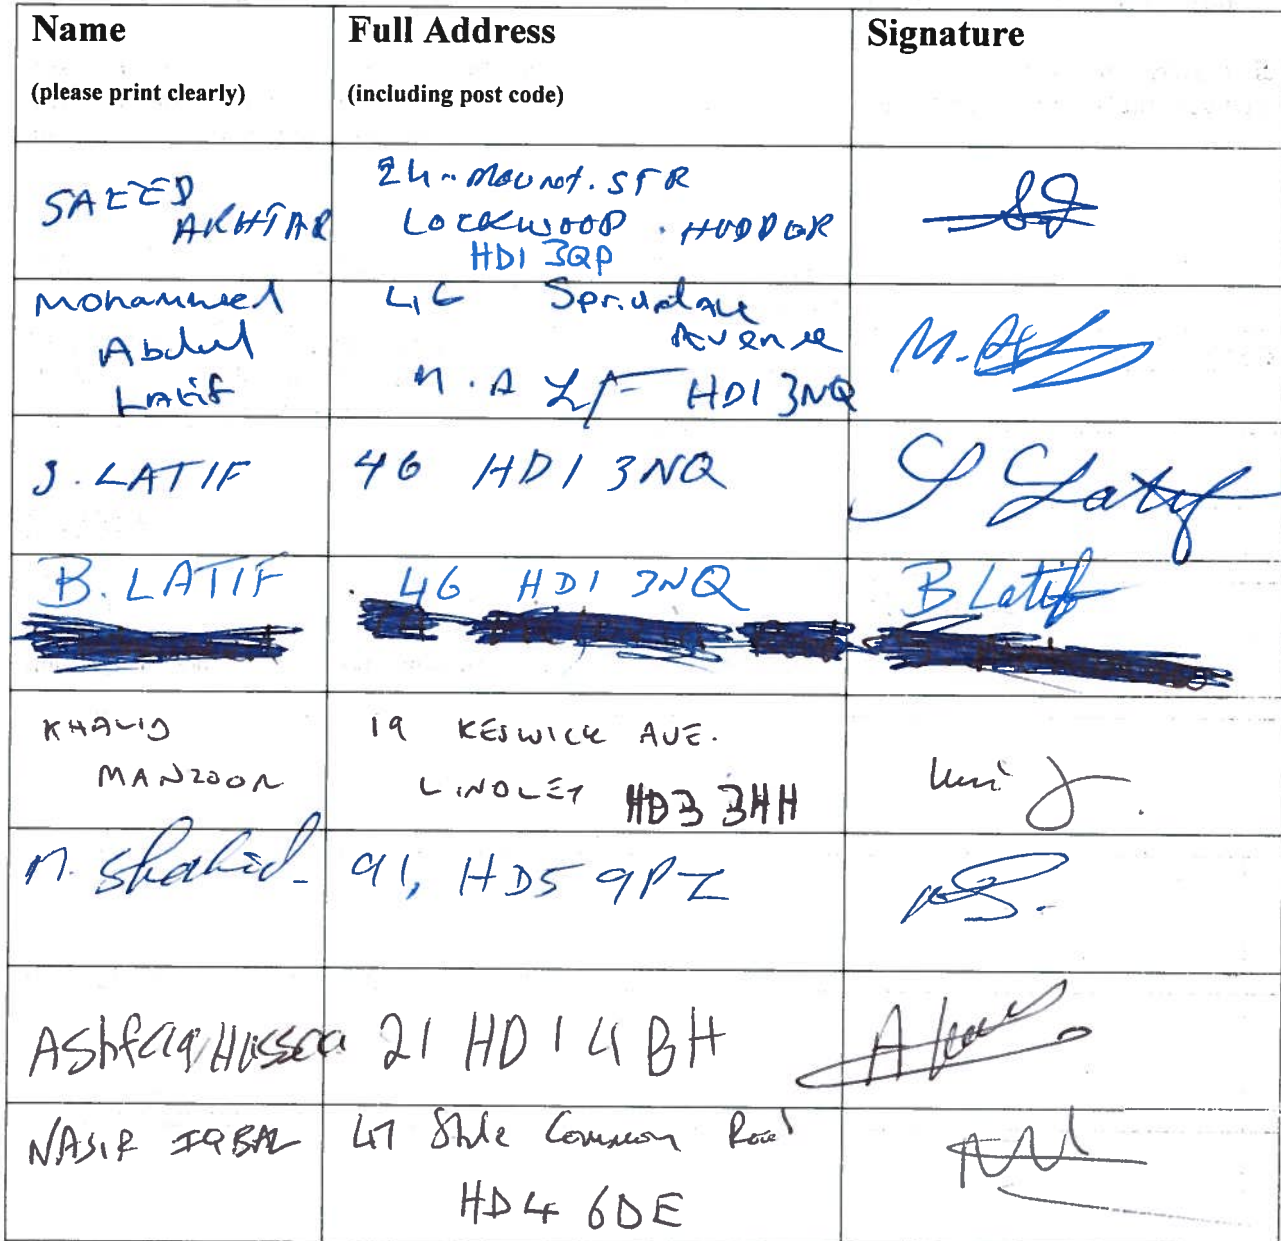 Name
(please print clearly)
Full Address
(including post code)
Signature
SAEED
AKHTAR
24 - Mount. STR
LOCKWOOD . HUDDER
HD1 3QP
Mohammed
Abdul
Latif
46
Avenue
M.A HD1 3NQ
M.A
S. LATIF
46 HD1 3NQ
S Latif
B. LATIF
46 HD1 3NQ
B Latif
KHALID
MANZOOR
19 KESWICK AVE.
LINDLEY HD3 3HH
M. Shahid
91, HD5 9PZ
Ashfaq Hussain
21 HD1 4BH
NASIR IQBAL
47 Stile Common Road
HD4 6DE